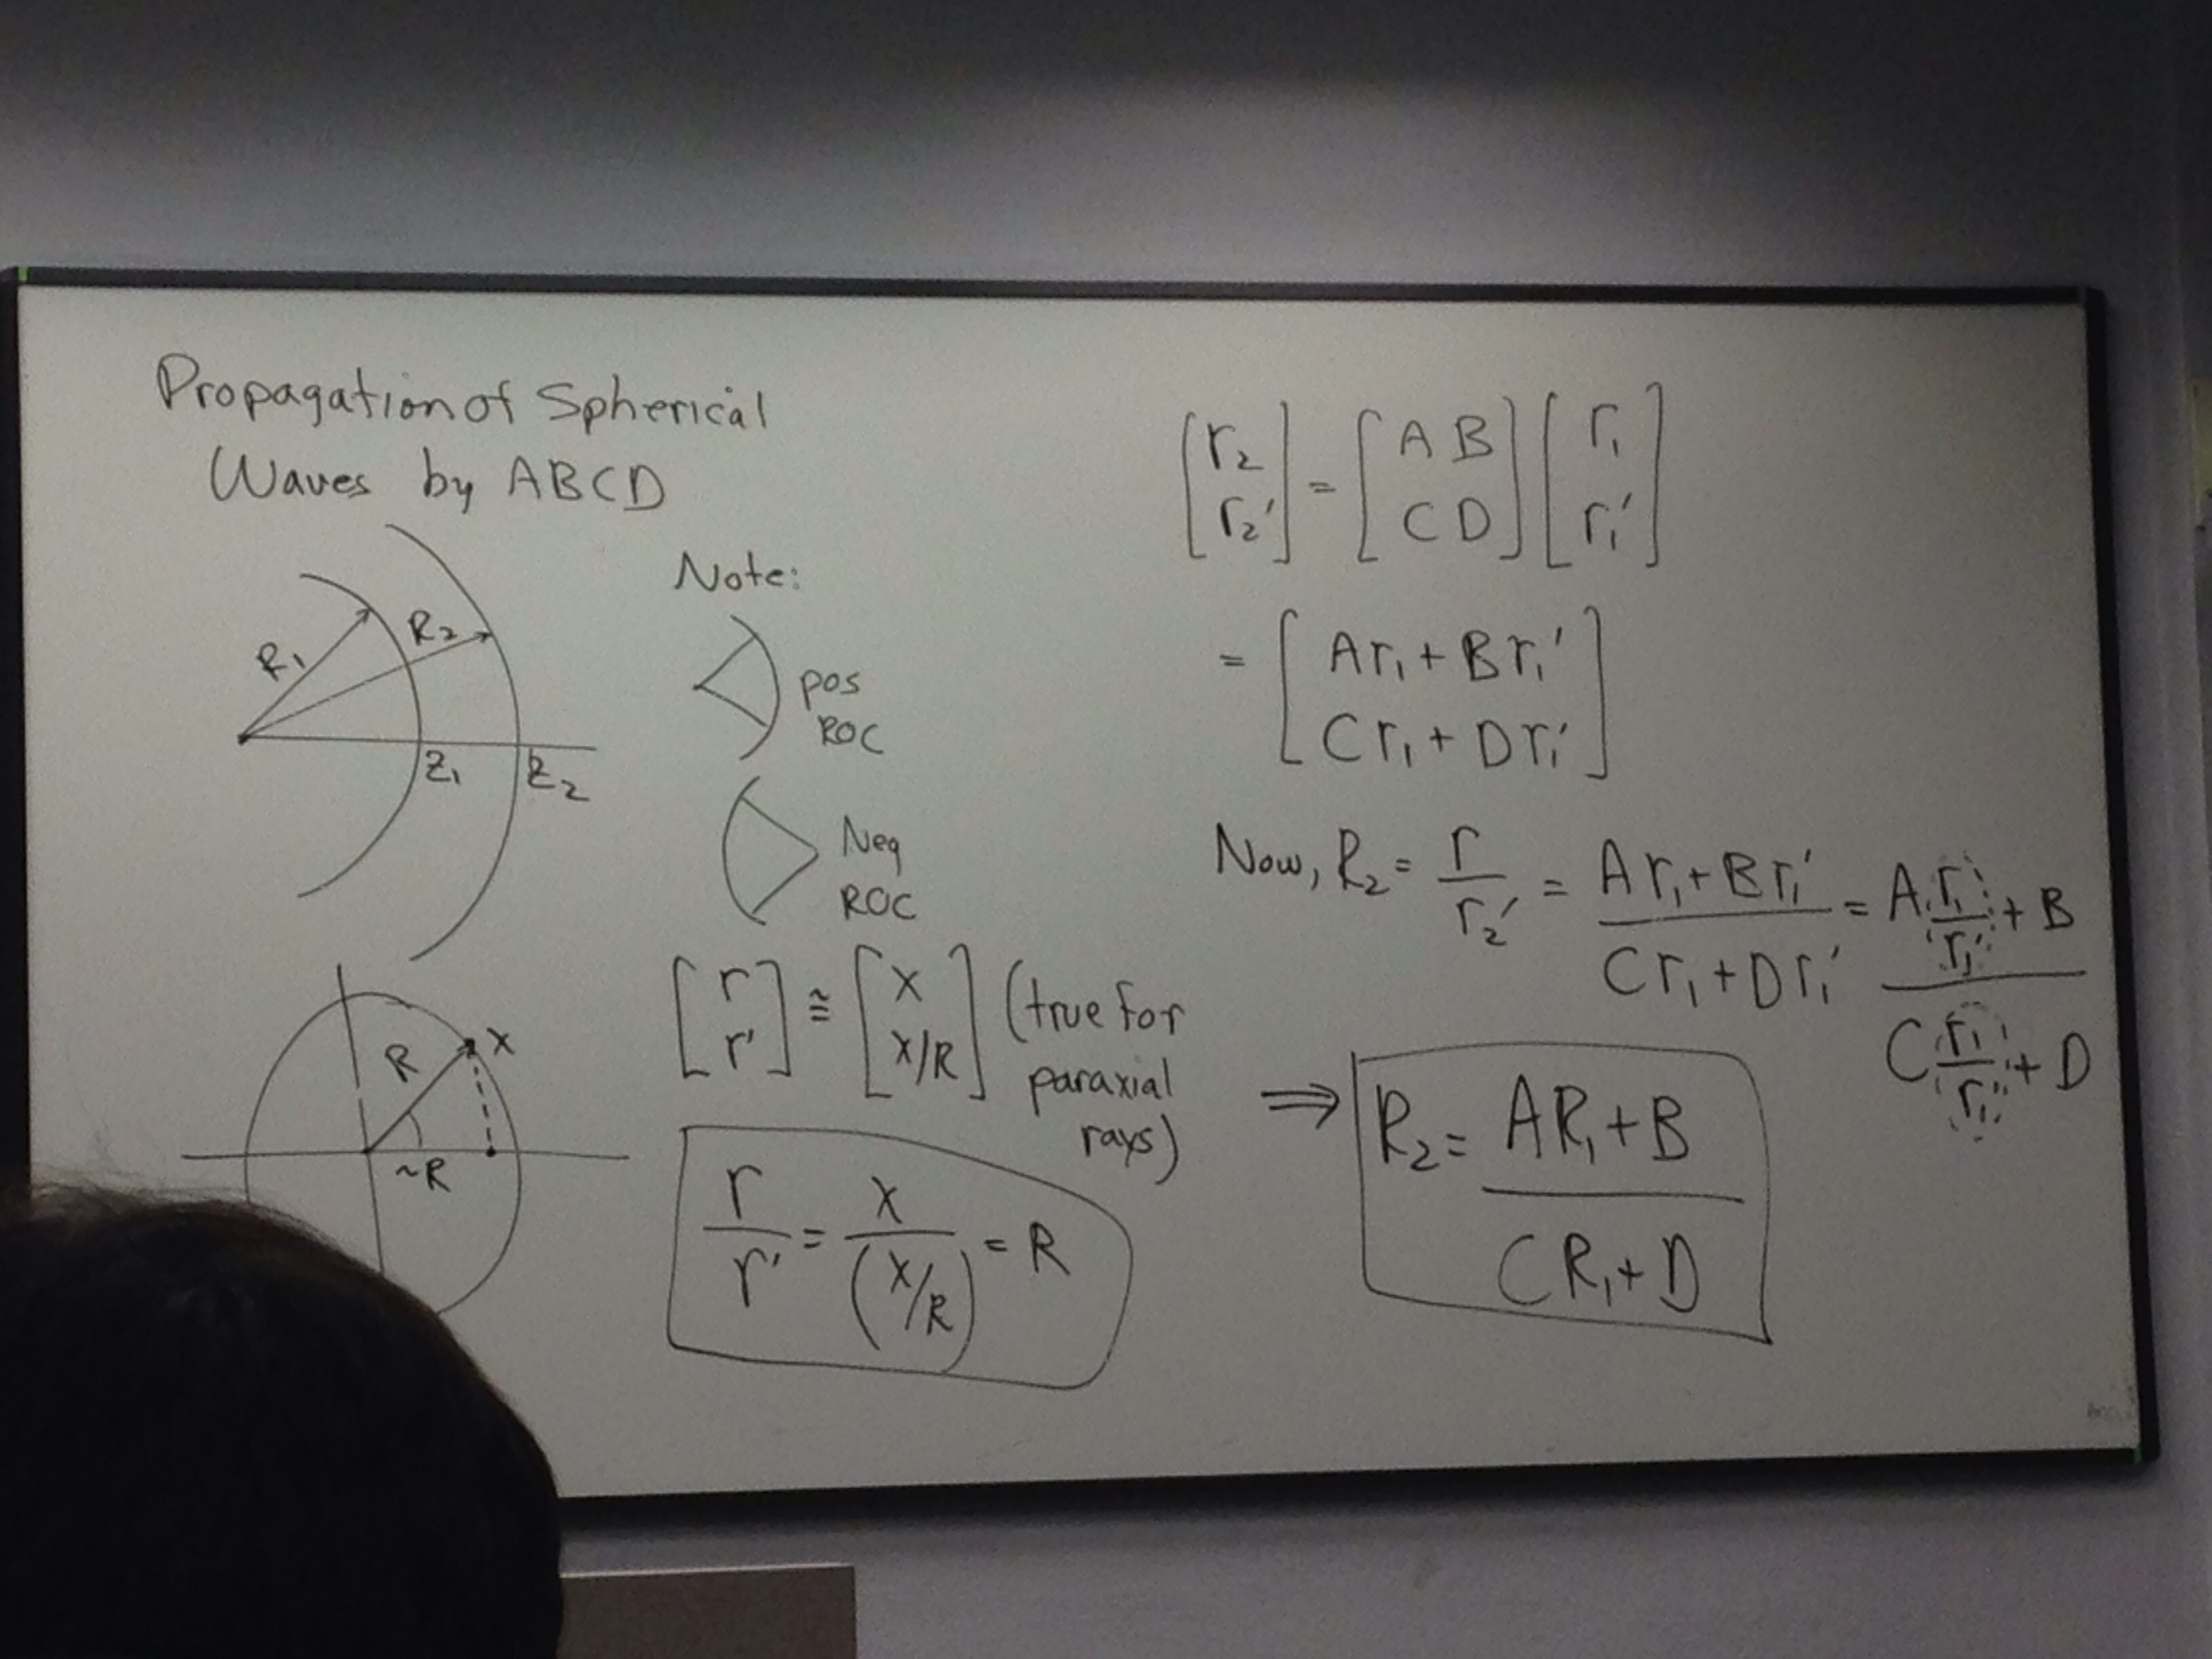 Propagation of Spherical
Waves by ABCD
R₁
R₂
z₁
z₂
Note:
pos
ROC
Neg
ROC
R
x
~R
[r r'] ≅ [x x/R] (true for
paraxial
rays)
r/r' = x/(x/R) = R
[r₂ r₂'] = [A B C D] [r₁ r₁']
= [Ar₁ + Br₁' Cr₁ + Dr₁']
Now, R₂ = r/r₂' = (Ar₁ + Br₁')/(Cr₁ + Dr₁') = (A r₁/r₁' + B)/(C r₁/r₁' + D)
⇒ R₂ = (AR₁ + B)/(CR₁ + D)